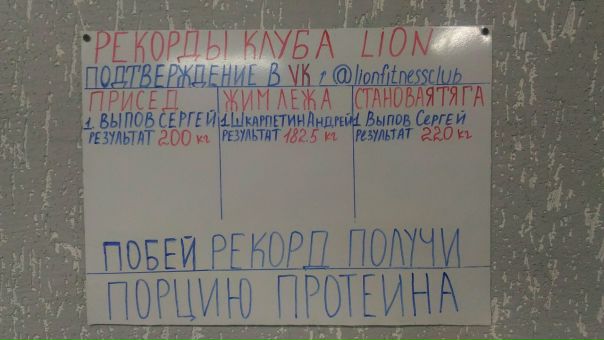 РЕКОРДЫ КЛУБА LION
ПОДТВЕРЖДЕНИЕ В VK, @lionfitnessclub
ПРИСЕД
1. ВЫПОВ СЕРГЕЙ
РЕЗУЛЬТАТ 200 кг
ЖИМ ЛЕЖА
1 ШКАРПЕТИН АНДРЕЙ
РЕЗУЛЬТАТ 182.5 кг
СТАНОВАЯ ТЯГА
1 ВЫПОВ СЕРГЕЙ
РЕЗУЛЬТАТ 220 кг
ПОБЕЙ РЕКОРД ПОЛУЧИ
ПОРЦИЮ ПРОТЕИНА